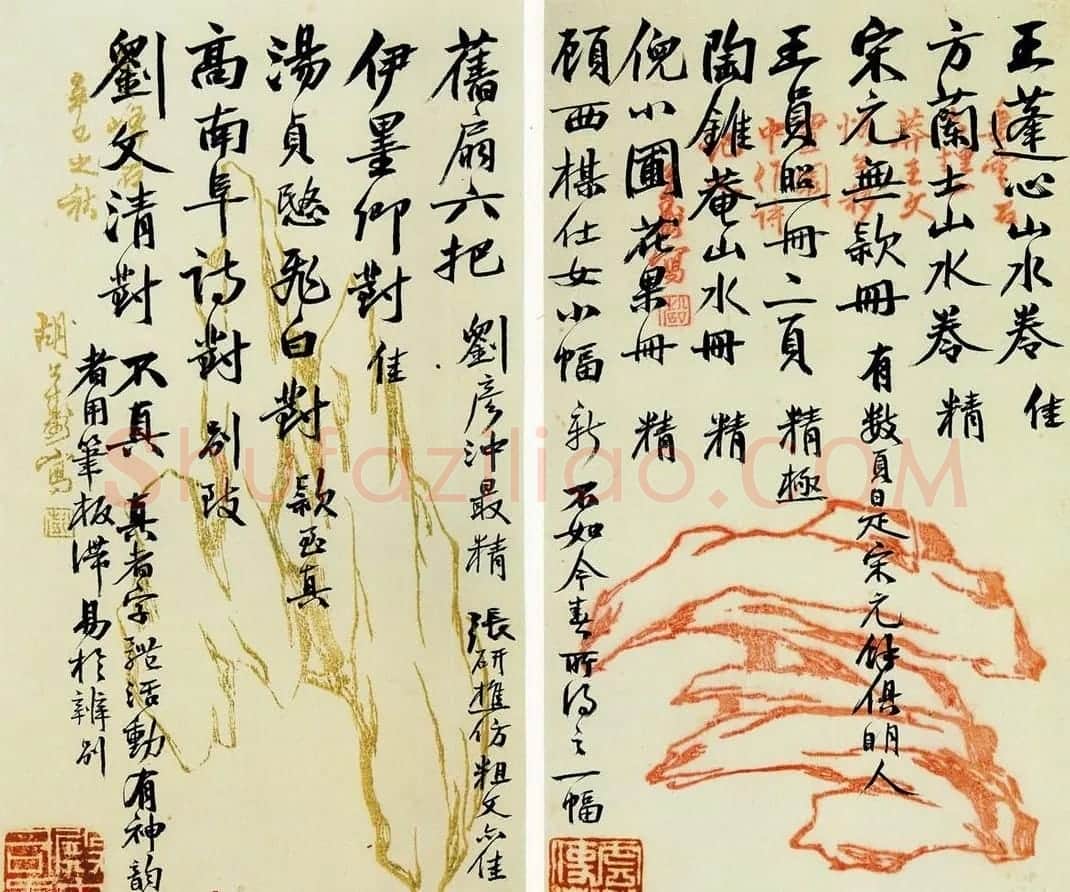 王蓬心山水卷 佳
方蘭士山水卷 精
宋元無款冊 有数頁是宋元餘俱明人
王員照冊二頁 精極
陶錐菴山水冊 精
倪小圃花果冊 精
顧西楳仕女小幅 新 不如今春所得之一幅
舊扇六把 劉彥沖最精 張研樵仿粗文亦佳
伊墨卿對 佳
湯貞愍飛白對 款至真
高南阜詩對 別致
劉文清對 不真 真者字蹤活動有神韵
者用筆板滯易於辨別
辛巳之秋
Shufaziliao.COM